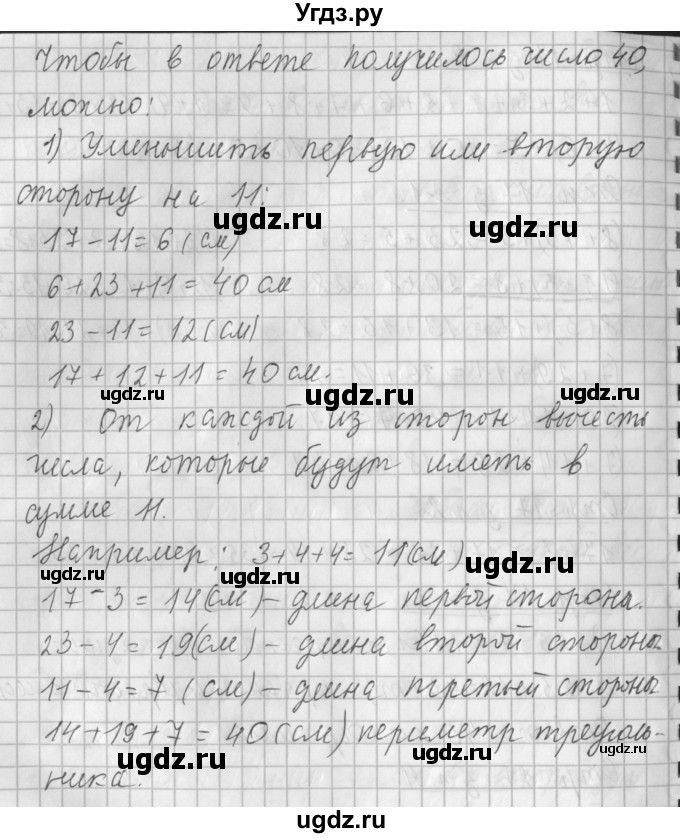 Угдз.ру
Чтобы в ответе получилось число 40,
можно:
1) Уменьшить первую или вторую
сторону на 11:
ugdz.ru
ugdz.ru
17-11=6 (см)
6+23+11=40 см
23-11=12(см)
17+12+11=40 см.
ugdz.ru
ugdz.ru
ugdz.ru
2) От каждой из сторон вычесть
числа, которые будут иметь в
сумме 11.
Например: 3+4+4=11(см)
ugdz.ru
ugdz.ru
17-3=14(см)-длина первой сторона.
23-4=19(см)-длина второй стороны
11-4=7 (см)-длина третьей стороны
ugdz.ru
14+19+7=40(см) периметр треуголь-
ника.
ugdz.ru
ugdz.ru
ugdz.ru
ugdz.ru